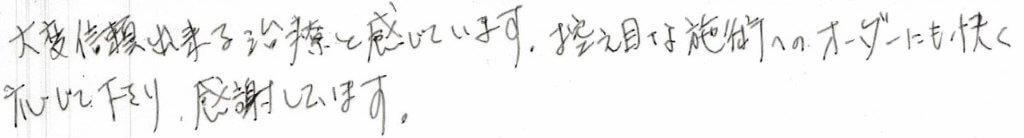 大変信頼出来る治療と感じています。控え目な施術へのオーダーにも快く
応じて下さり、感謝しています。